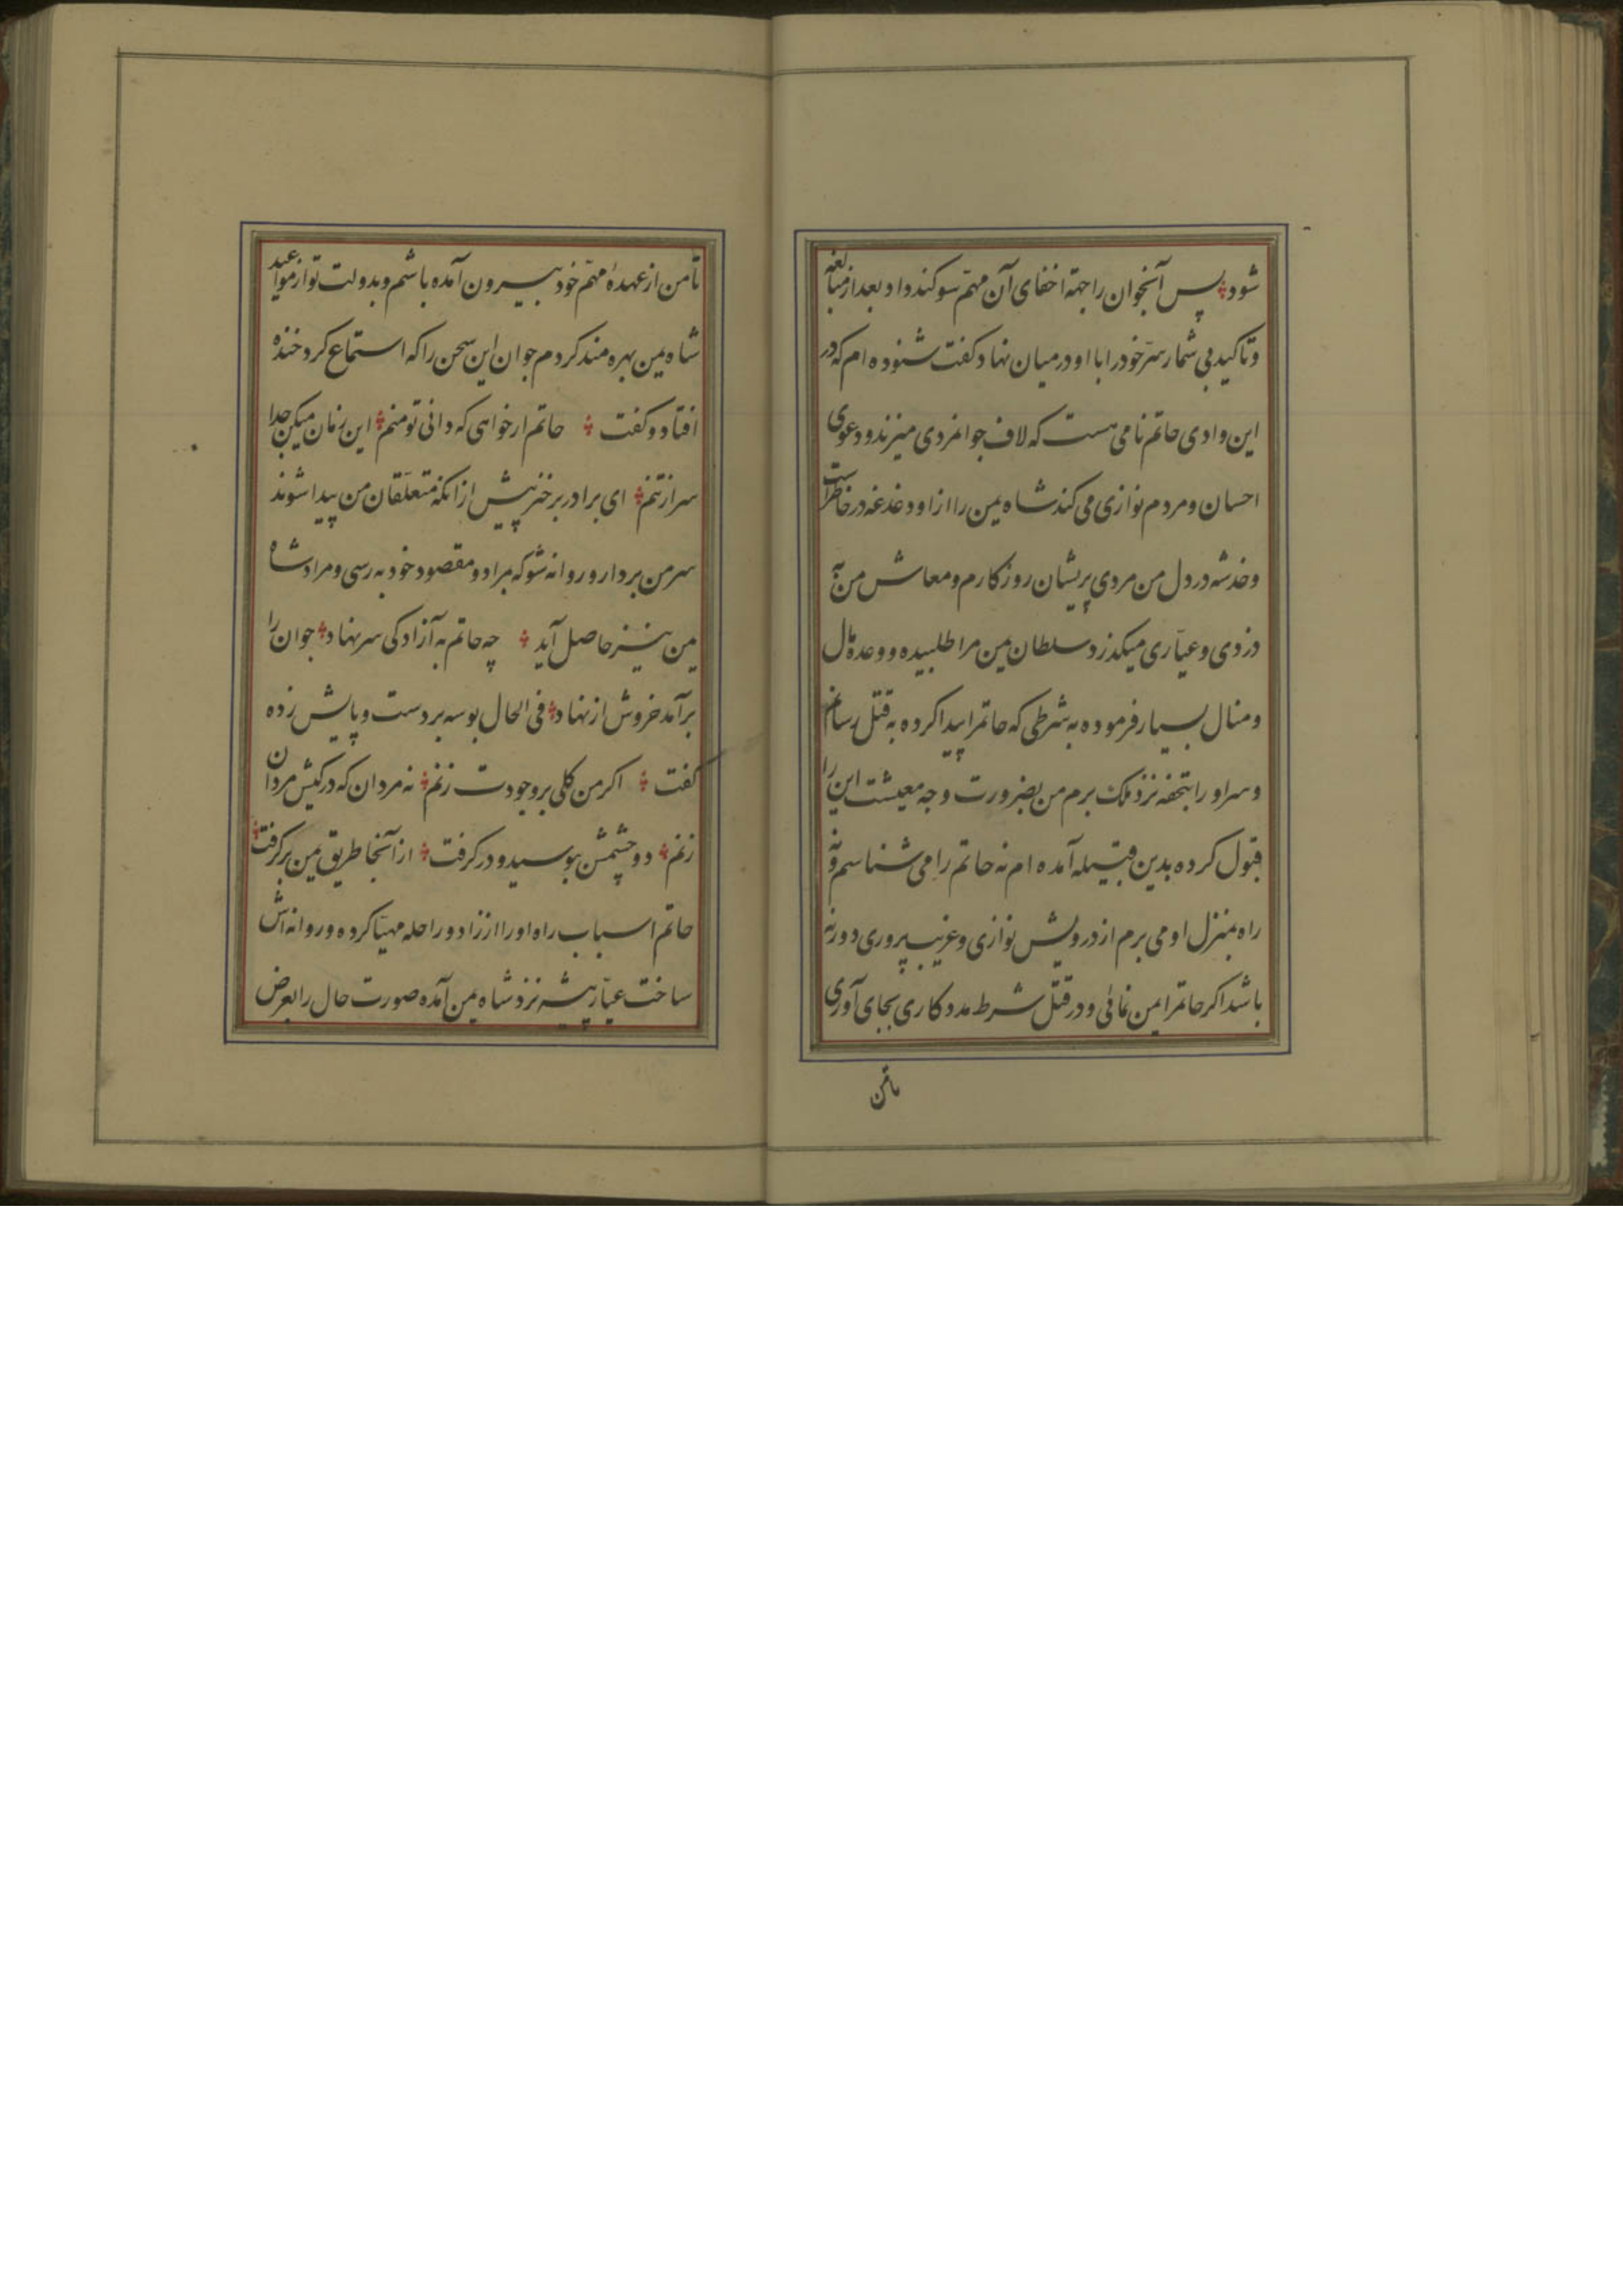 شود پس آنجوان را جهة اخفای آن مهمّ سوکند داد و بعد از مبالغه
و تاکید بی شمار سرّ خود را با او در میان نهاد کفت شنوده ام که در
این وادی حاتم نامی هست که لاف جوانمردی میزند و دعوی
احسان و مردم نوازی می کند شاه یمن را از او دغدغه در خاطر است
و خدشه در دل من مردی پریشان روزکارم و معاش من به
دزدی و عیّاری میکذرد سلطان یمن مرا طلبیده و وعدهٔ مال
و منال بسیار فرموده به شرطی که حاتم را پیدا کرده به قتل رسانم
و سر او را بتحفه نزد ملک برم من بضرورت وجه معیشت این را
قبول کرده بدین قبیله آمده ام نه حاتم را می شناسم و نه
راه بمنزل او می برم از درویش نوازی و غریب پروری دور نه
باشد اکر حاتم را بمن نمائی و در قتل شرط مددکاری بجای آوری
تا من
تا من از عهدهٔ مهمّ خود بیرون آمده باشم و بدولت تو از مواعید
شاه یمن بهره مند کردم جوان این سخن را که استماع کرد خنده
افتاد و کفت حاتم ار خواهی که دانی تو منم این زمان میکن جدا
سر از تنم ای برادر برخیز پیش از انکه متعلّقان من پیدا شوند
سر من بردار و روانه شو که بمراد و مقصود خود به رسی و مراد شاه
یمن نیز حاصل آید چه حاتم به آزادکی سر نهاد جوان را
برآمد خروش از نهاد فی الحال بوسه بر دست و پایش زده
کفت اکر من کلی بر وجودت زنم نه مردان که در کیش مردان
زنم دو چشمش ببوسید و در کرفت از آنجا طریق یمن بر کرفت
حاتم اسباب راه او را از زاد و راحله مهیّا کرده و روانه اش
ساخت عیّار پیشه نزد شاه یمن آمده صورت حال را بعرض